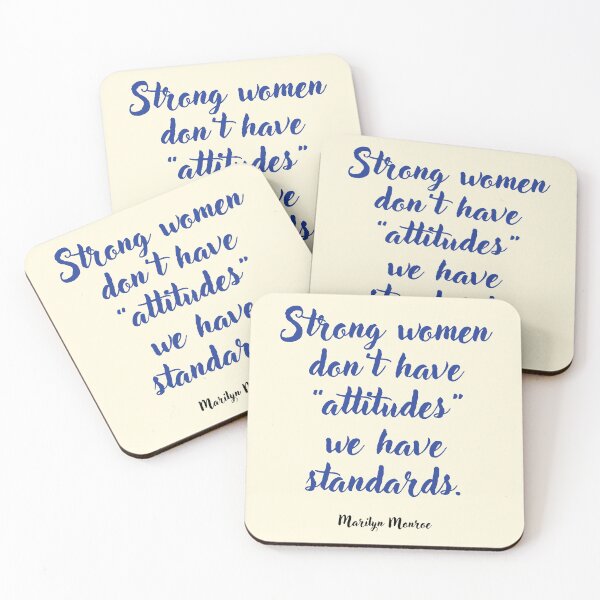 Strong women
don't have
"attitudes"
Strong women
don't have
"attitudes"
we have
Strong women
don't have
"attitudes"
we have
standards
Marilyn
Strong women
don't have
"attitudes"
we have
standards.
Marilyn Monroe